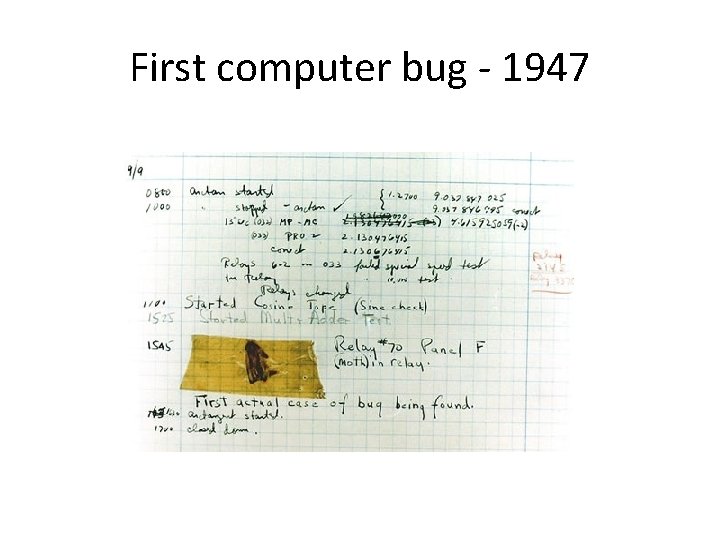 First computer bug - 1947
9/9
0800 antan started { 1.2700 9.037 847 025
1000 " stopped - antan ✓ 9.037 846 995 correct
13"uc (032) MP - MC 4.615925059(-2)
(033) PRO 2 2.130476415
correct 2.130676415
Relays 6-2 in 033 failed special speed test
in relay 10.000 test.
Relay
2145
Relay 3370
Relays changed
1100 Started Cosine Tape (Sine check)
1525 Started Multi Adder Test.
1545 Relay #70 Panel F
(moth) in relay.
First actual case of bug being found.
antangent started.
1700 closed down.